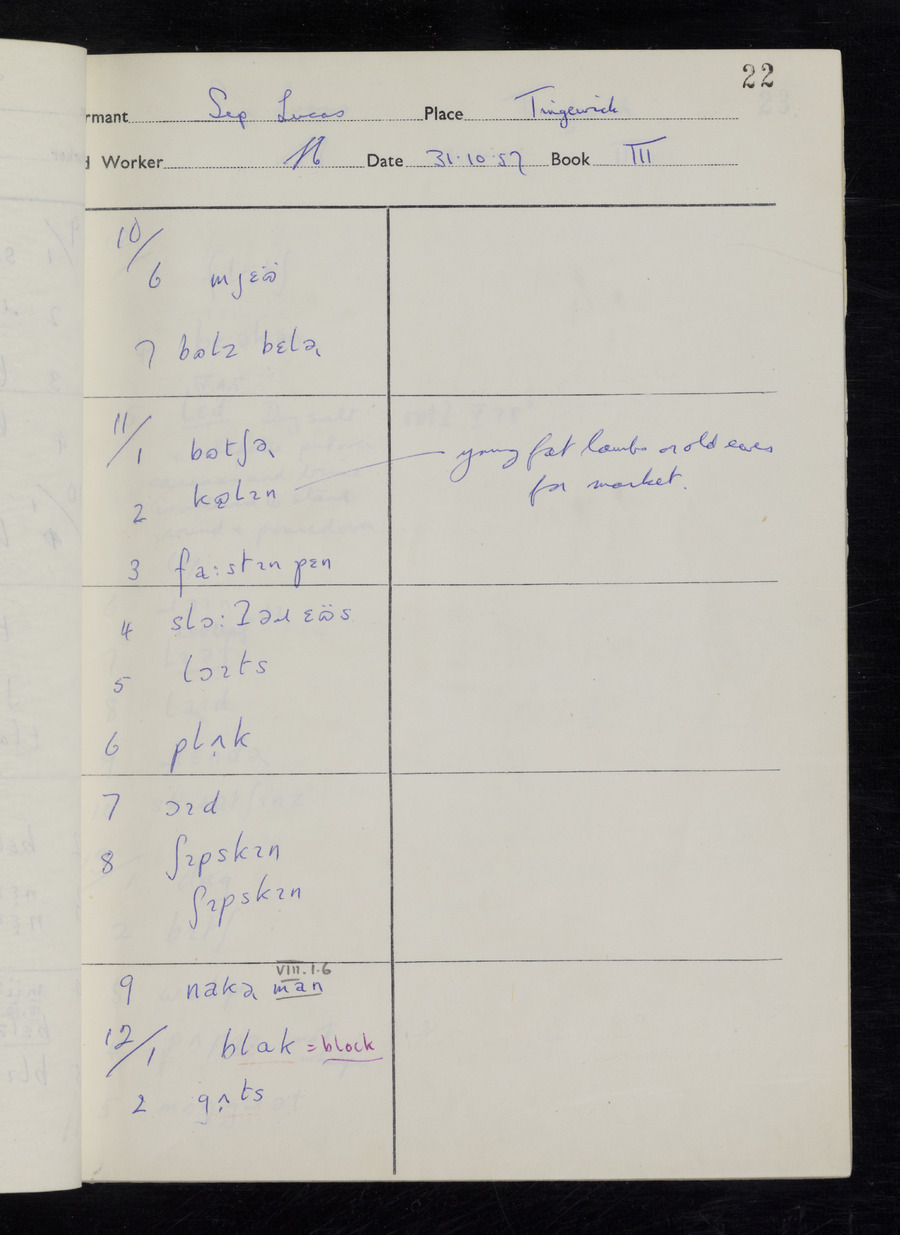 22
rmant Sep Lucas Place Tingewick
Worker Date 31.10.57 Book III
10/
6 mjɛö
7
11/
1
2
young fat lambs or old ewes
for market.
3 fa:stɪn pɛn
4
5 lɔɪts
6 plʌ̣k
7 ɔɪd
8 ʃɪpskɪn
ʃɪpskɪn
VIII.1.6
9 nakə man
12/
1 blak = block
2 gʌ̣ts